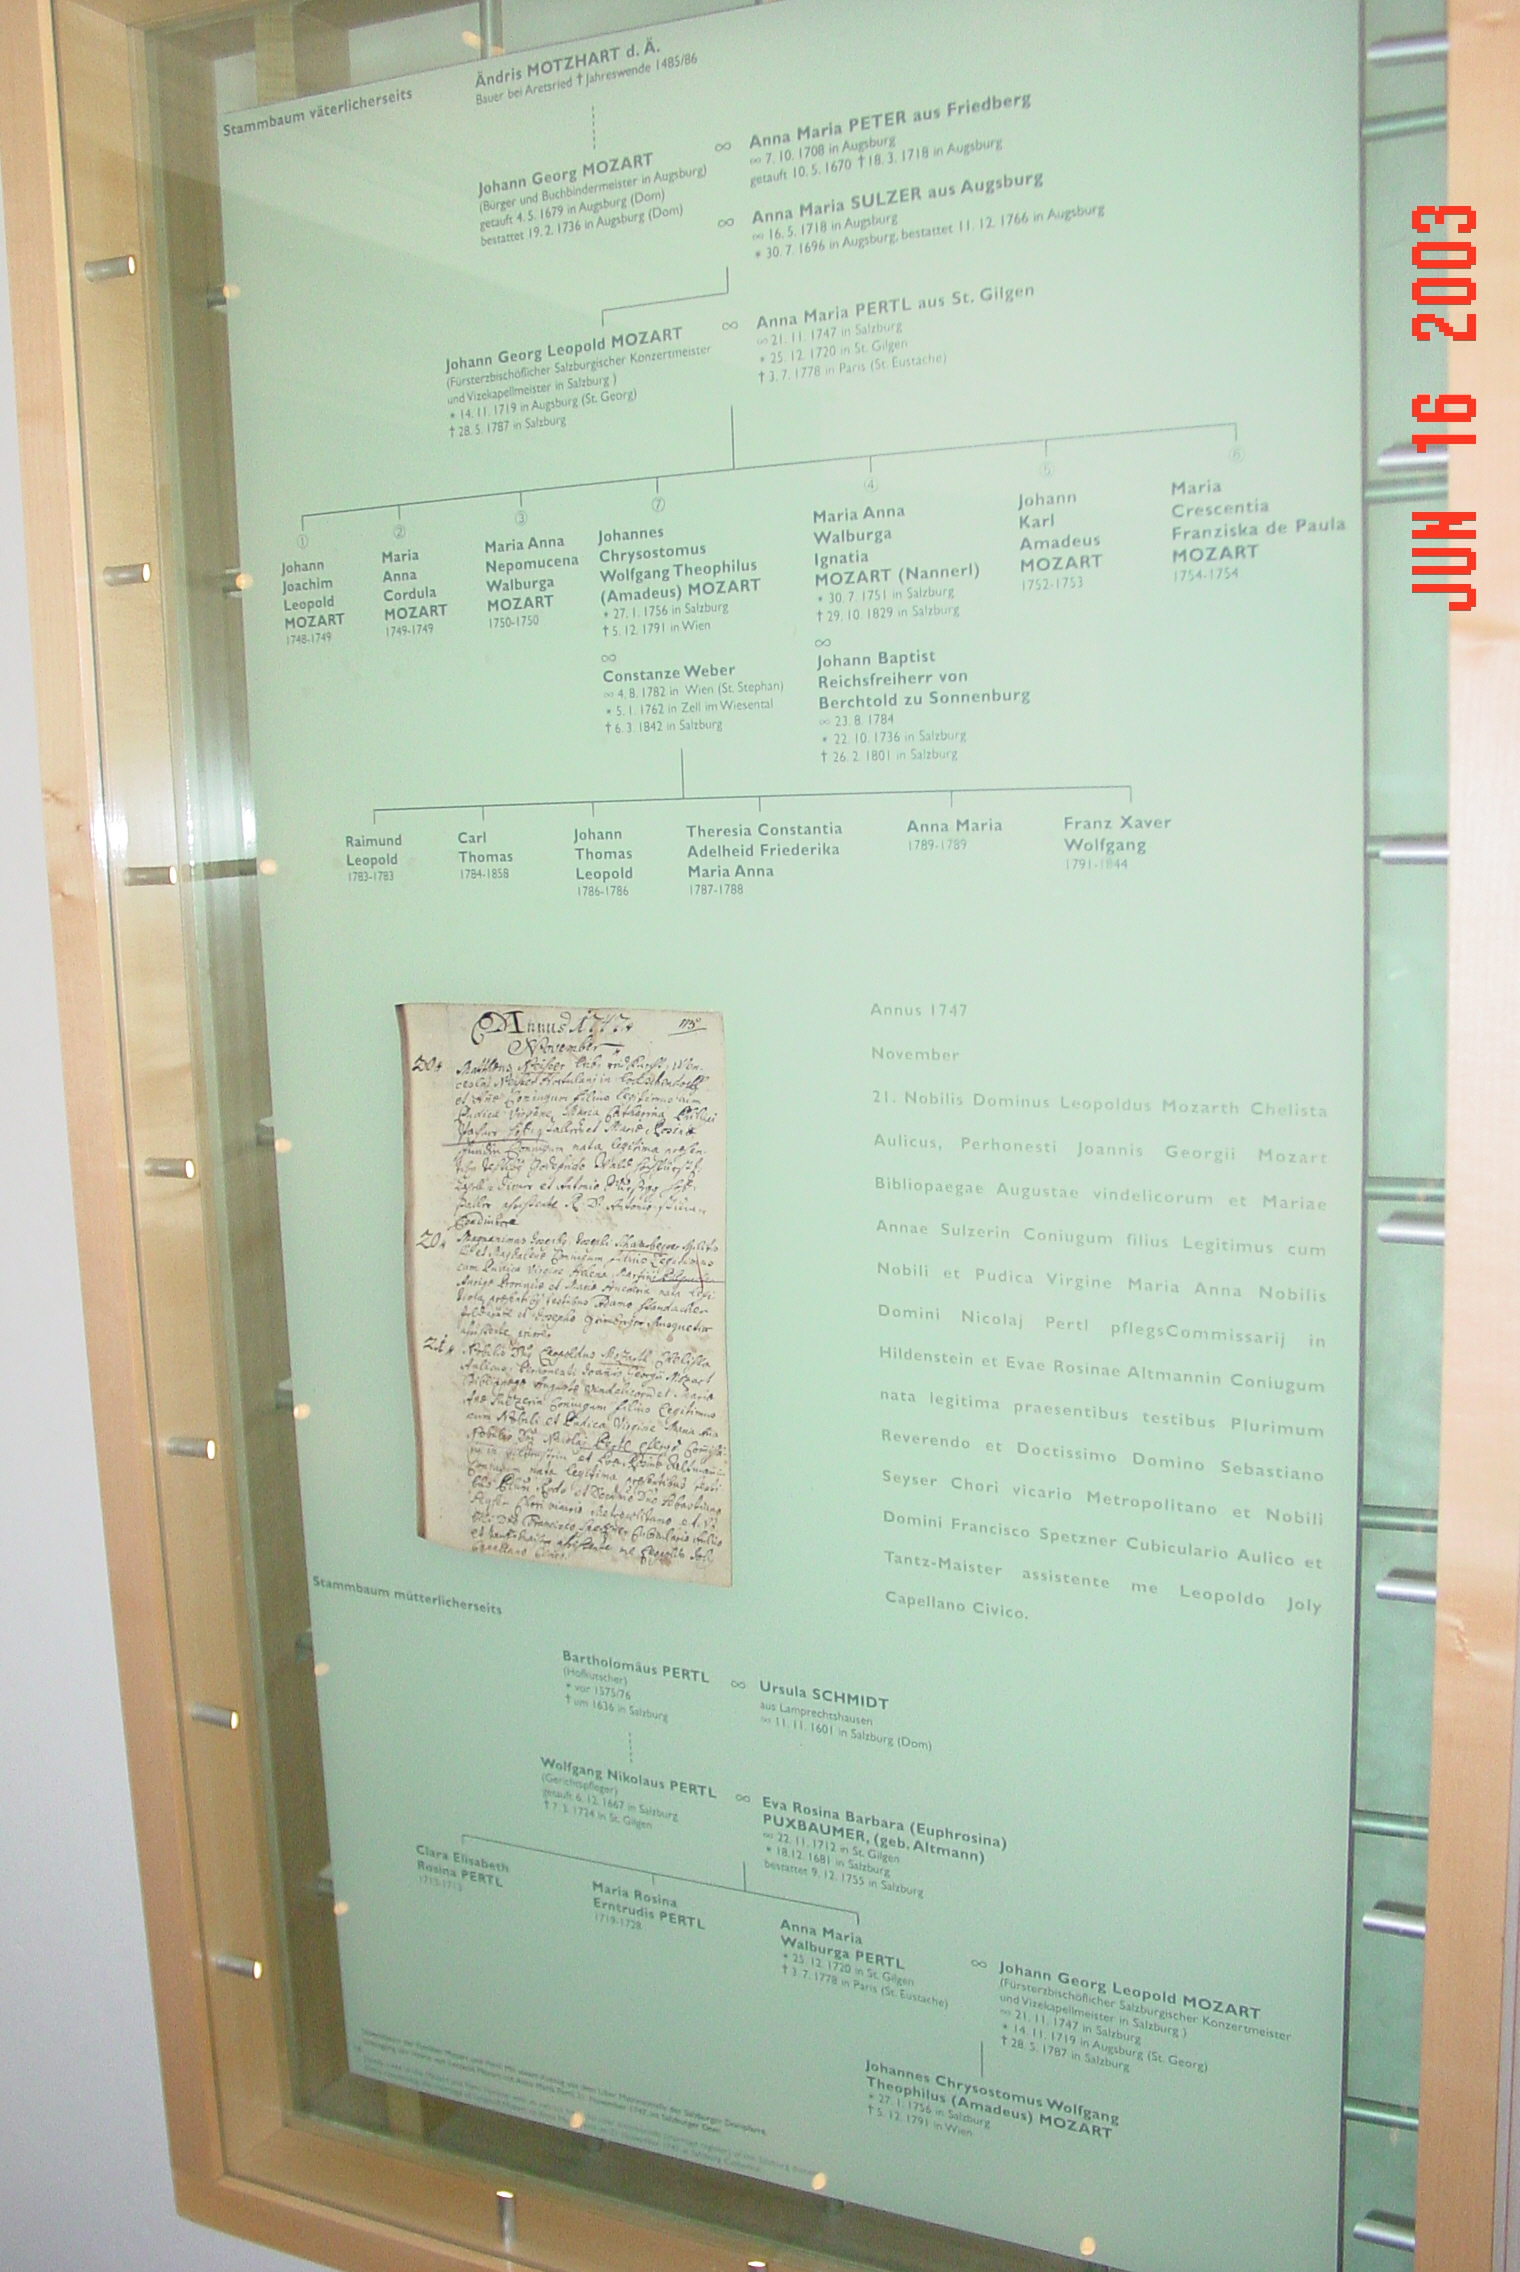 Stammbaum väterlicherseits
Ändris MOTZHART d. Ä.
Bauer bei Aretsried † Jahreswende 1485/86
Johann Georg MOZART
(Bürger und Buchbindermeister in Augsburg)
getauft 4. 5. 1679 in Augsburg (Dom)
bestattet 19. 2. 1736 in Augsburg (Dom)
∞ Anna Maria PETER aus Friedberg
∞ 7. 10. 1708 in Augsburg
getauft 10. 5. 1670 † 18. 3. 1718 in Augsburg
∞ Anna Maria SULZER aus Augsburg
∞ 16. 5. 1718 in Augsburg
* 30. 7. 1696 in Augsburg, bestattet 11. 12. 1766 in Augsburg
Johann Georg Leopold MOZART
(Fürsterzbischöflicher Salzburgischer Konzertmeister
und Vizekapellmeister in Salzburg )
* 14. 11. 1719 in Augsburg (St. Georg)
† 28. 5. 1787 in Salzburg
∞ Anna Maria PERTL aus St. Gilgen
∞ 21. 11. 1747 in Salzburg
* 25. 12. 1720 in St. Gilgen
† 3. 7. 1778 in Paris (St. Eustache)
①
Johann
Joachim
Leopold
MOZART
1748-1749
②
Maria
Anna
Cordula
MOZART
1749-1749
③
Maria Anna
Nepomucena
Walburga
MOZART
1750-1750
⑦
Johannes
Chrysostomus
Wolfgang Theophilus
(Amadeus) MOZART
* 27. 1. 1756 in Salzburg
† 5. 12. 1791 in Wien
∞
Constanze Weber
∞ 4. 8. 1782 in Wien (St. Stephan)
* 5. 1. 1762 in Zell im Wiesental
† 6. 3. 1842 in Salzburg
④
Maria Anna
Walburga
Ignatia
MOZART (Nannerl)
* 30. 7. 1751 in Salzburg
† 29. 10. 1829 in Salzburg
∞
Johann Baptist
Reichsfreiherr von
Berchtold zu Sonnenburg
∞ 23. 8. 1784
* 22. 10. 1736 in Salzburg
† 26. 2. 1801 in Salzburg
⑤
Johann
Karl
Amadeus
MOZART
1752-1753
⑥
Maria
Crescentia
Franziska de Paula
MOZART
1754-1754
Raimund
Leopold
1783-1783
Carl
Thomas
1784-1858
Johann
Thomas
Leopold
1786-1786
Theresia Constantia
Adelheid Friederika
Maria Anna
1787-1788
Anna Maria
1789-1789
Franz Xaver
Wolfgang
1791-1844
Annus 1747
November
Annus 1747
November
21. Nobilis Dominus Leopoldus Mozarth Chelista
Aulicus, Perhonesti Joannis Georgii Mozart
Bibliopaegae Augustae vindelicorum et Mariae
Annae Sulzerin Coniugum filius Legitimus cum
Nobili et Pudica Virgine Maria Anna Nobilis
Domini Nicolaj Pertl pflegsCommissarij in
Hildenstein et Evae Rosinae Altmannin Coniugum
nata legitima praesentibus testibus Plurimum
Reverendo et Doctissimo Domino Sebastiano
Seyser Chori vicario Metropolitano et Nobili
Domini Francisco Spetzner Cubiculario Aulico et
Tantz-Maister assistente me Leopoldo Joly
Capellano Civico.
Stammbaum mütterlicherseits
Bartholomäus PERTL
(Hofkutscher)
* vor 1575/76
† um 1636 in Salzburg
∞ Ursula SCHMIDT
aus Lamprechtshausen
∞ 11. 11. 1601 in Salzburg (Dom)
Wolfgang Nikolaus PERTL
(Gerichtspfleger)
getauft 6. 12. 1667 in Salzburg
† 7. 3. 1724 in St. Gilgen
∞ Eva Rosina Barbara (Euphrosina)
PUXBAUMER, (geb. Altmann)
∞ 22. 11. 1712 in St. Gilgen
* 18.12. 1681 in Salzburg
bestattet 9. 12. 1755 in Salzburg
Clara Elisabeth
Rosina PERTL
Maria Rosina
Erntrudis PERTL
1719-1728
Anna Maria
Walburga PERTL
* 25. 12. 1720 in St. Gilgen
† 3. 7. 1778 in Paris (St. Eustache)
∞ Johann Georg Leopold MOZART
(Fürsterzbischöflicher Salzburgischer Konzertmeister
und Vizekapellmeister in Salzburg )
∞ 21. 11. 1747 in Salzburg
* 14. 11. 1719 in Augsburg (St. Georg)
† 28. 5. 1787 in Salzburg
Johannes Chrysostomus Wolfgang
Theophilus (Amadeus) MOZART
* 27. 1. 1756 in Salzburg
† 5. 12. 1791 in Wien
JUN 16 2003